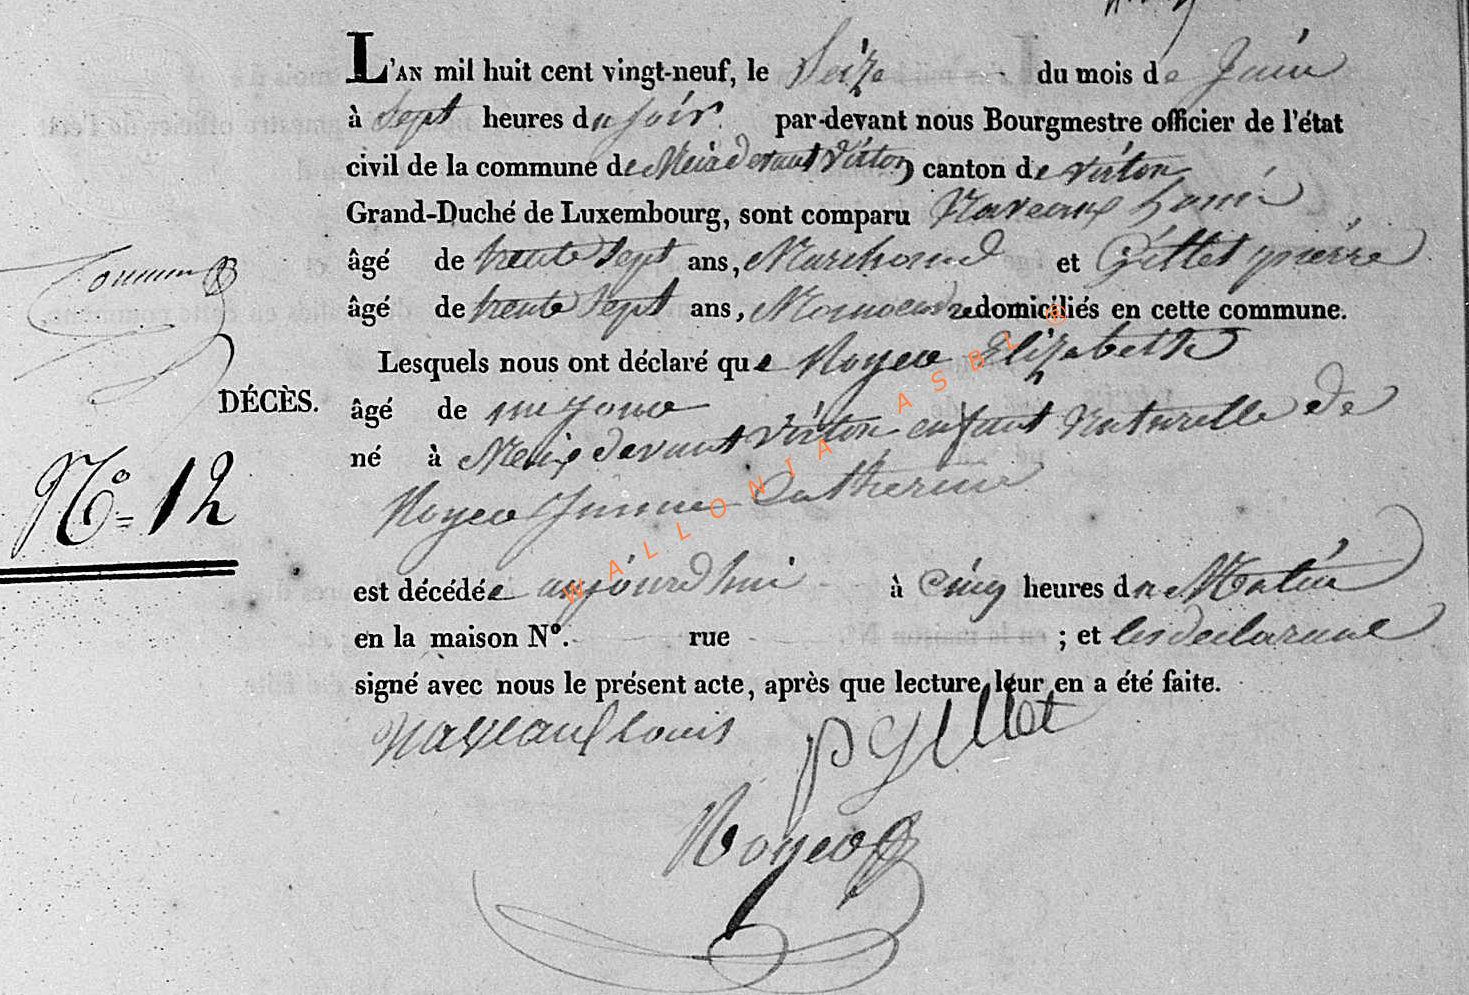 L'AN mil huit cent vingt-neuf, le Seize du mois de Juin
à Sept heures du soir par-devant nous Bourgmestre officier de l'état
civil de la commune de Meix devant Virton canton de virton
Grand-Duché de Luxembourg, sont comparu Naveaux Louis
âgé de trente Sept ans, Marchand et Gillet pierre
âgé de trente Sept ans, domiciliés en cette commune.
Lesquels nous ont déclaré que Noyea Elizabeth
DÉCÈS.
âgé de un
né à Meix devant Virton enfant Naturelle de
N° 12
Noyea Jeanne Catherine
est décédée aujourd'hui à Cinq heures du Matin
en la maison N°. rue ; et les declarant
signé avec nous le présent acte, après que lecture leur en a été faite.
Naveaux Louis P Gillet
Noyea
WALLONIA ASBL ®